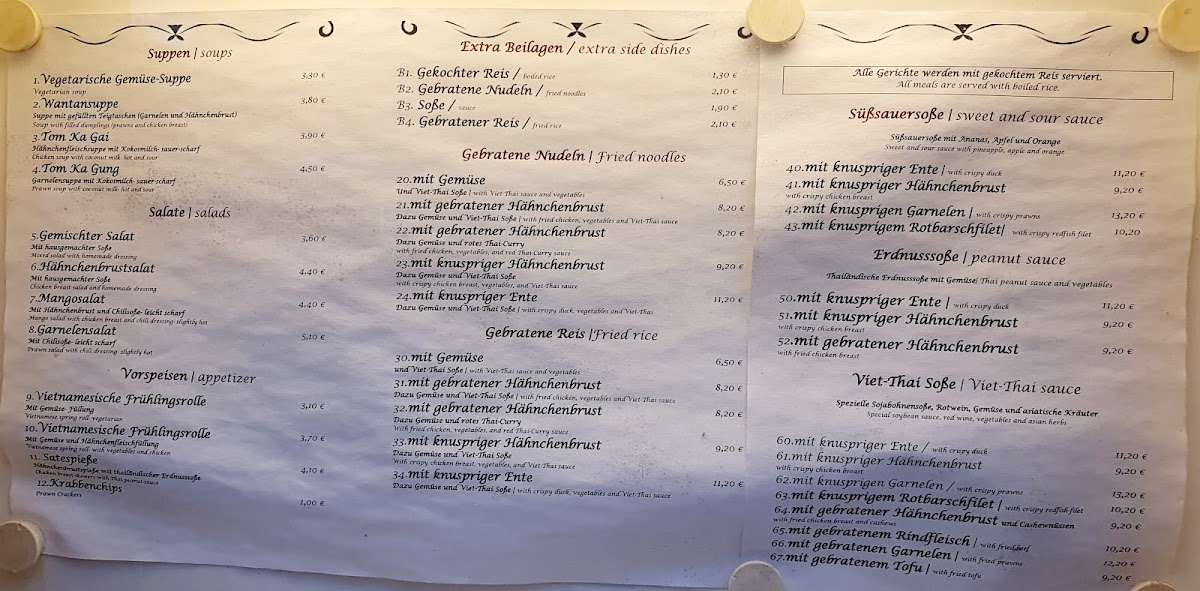 Suppen | soups
1. Vegetarische Gemüse-Suppe 3,30 €
Vegetarian soup
2. Wantansuppe 3,80 €
Suppe mit gefüllten Teigtaschen (Garnelen und Hähnchenbrust)
Soup with filled dumplings (prawns and chicken breast)
3. Tom Ka Gai 3,90 €
Hähnchenfleischsuppe mit Kokosmilch- sauer-scharf
Chicken soup with coconut milk- hot and sour
4. Tom Ka Gung 4,50 €
Garnelensuppe mit Kokosmilch- sauer-scharf
Prawn soup with coconut milk- hot and sour
Salate | salads
5. Gemischter Salat 3,60 €
Mit hausgemachter Soße
Mixed salad with homemade dressing
6. Hähnchenbrustsalat 4,40 €
Mit hausgemachter Soße
Chicken breast salad and homemade dressing
7. Mangosalat 4,40 €
Mit Hähnchenbrust und Chilisoße- leicht scharf
Mango salad with chicken breast and chili dressing- slightly hot
8. Garnelensalat 5,10 €
Mit Chilisoße- leicht scharf
Prawn salad with chili dressing- slightly hot
Vorspeisen | appetizer
9. Vietnamesische Frühlingsrolle 3,10 €
Mit Gemüse- Füllung
Vietnamese spring roll- vegetarian
10. Vietnamesische Frühlingsrolle 3,70 €
Mit Gemüse und Hähnchenfleischfüllung
Vietnamese spring roll- with vegetables and chicken
11. Satespieße 4,10 €
Hähnchenbrustspieße mit thailändischer Erdnusssoße
Chicken breast skewers with Thai peanut sauce
12. Krabbenchips 1,00 €
Prawn Crackers
Extra Beilagen / extra side dishes
B1. Gekochter Reis / boiled rice 1,30 €
B2. Gebratene Nudeln / fried noodles 2,10 €
B3. Soße / sauce 1,90 €
B4. Gebratener Reis / fried rice 2,10 €
Gebratene Nudeln | Fried noodles
20. mit Gemüse 6,50 €
Und Viet-Thai Soße | with Viet-Thai sauce and vegetables
21. mit gebratener Hähnchenbrust 8,20 €
Dazu Gemüse und Viet-Thai Soße | with fried chicken, vegetables and Viet-Thai sauce
22. mit gebratener Hähnchenbrust 8,20 €
Dazu Gemüse und rotes Thai-Curry
with fried chicken, vegetables, and red Thai-Curry sauce
23. mit knuspriger Hähnchenbrust 9,20 €
Dazu Gemüse und Viet-Thai Soße
with crispy chicken breast, vegetables, and Viet-Thai sauce
24. mit knuspriger Ente 11,20 €
Dazu Gemüse und Viet-Thai Soße | with crispy duck, vegetables and Viet-Thai
Gebratene Reis |Fried rice
30. mit Gemüse 6,50 €
und Viet-Thai Soße | with Viet-Thai sauce and vegetables
31. mit gebratener Hähnchenbrust 8,20 €
Dazu Gemüse und Viet-Thai Soße | with fried chicken, vegetables and Viet-Thai sauce
32. mit gebratener Hähnchenbrust 8,20 €
Dazu Gemüse und rotes Thai-Curry
With fried chicken, vegetables, and red Thai-Curry sauce
33. mit knuspriger Hähnchenbrust 9,20 €
Dazu Gemüse und Viet-Thai Soße
With crispy chicken breast, vegetables and Viet-Thai sauce
34. mit knuspriger Ente 11,20 €
Dazu Gemüse und Viet-Thai Soße | with crispy duck, vegetables and Viet-Thai sauce
Alle Gerichte werden mit gekochtem Reis serviert.
All meals are served with boiled rice.
Süßsauersoße | sweet and sour sauce
Süßsauersoße mit Ananas, Apfel und Orange
Sweet and sour sauce with pineapple, apple and orange
40. mit knuspriger Ente | with crispy duck 11,20 €
41. mit knuspriger Hähnchenbrust 9,20 €
with crispy chicken breast
42. mit knusprigen Garnelen | with crispy prawns 13,20 €
43. mit knusprigem Rotbarschfilet| with crispy redfish filet 10,20
Erdnusssoße | peanut sauce
Thailändische Erdnusssoße mit Gemüse| Thai peanut sauce and vegetables
50. mit knuspriger Ente | with crispy duck 11,20 €
51. mit knuspriger Hähnchenbrust 9,20 €
with crispy chicken breast
52. mit gebratener Hähnchenbrust 9,20 €
with fried chicken breast
Viet-Thai Soße | Viet-Thai sauce
Spezielle Sojabohnensoße, Rotwein, Gemüse und asiatische Kräuter
Special soybean sauce, red wine, vegetables and asian herbs
60. mit knuspriger Ente / with crispy duck 11,20 €
61. mit knuspriger Hähnchenbrust 9,20 €
with crispy chicken breast
62. mit knusprigen Garnelen / with crispy prawns 13,20 €
63. mit knusprigem Rotbarschfilet | with crispy redfish filet 10,20 €
64. mit gebratener Hähnchenbrust und Cashewnüssen 9,20 €
with fried chicken breast and cashews
65. mit gebratenem Rindfleisch | with fried beef 10,20 €
66. mit gebratenen Garnelen | with fried prawns 12,20 €
67. mit gebratenem Tofu | with fried tofu 9,20 €